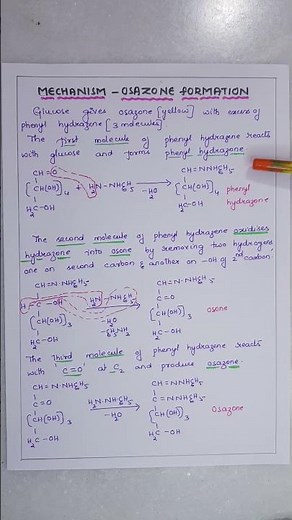 MECHANISM - OSAZONE FORMATION
Glucose gives osazone [yellow] with excess of
phenyl hydrazene [3 molecules]
The first molecule of phenyl hydrazene reacts
with glucose and forms phenyl hydrazone
CH=O CH=NNHC6H5
[CH(OH)]4 + H2N-NHC6H5 → [CH(OH)]4 phenyl
-H2O
H2C-OH H2C-OH hydrazone
The second molecule of phenyl hydrazene oxidises
hydrazone into osone by removing two hydrogens
one on second carbon & another on -OH of 2nd carbon
CH=N-NHC6H5 CH=N·NHC6H5
H-C-OH H2N-NHC6H5 C=O
[CH(OH)]3 -H2O [CH(OH)]3 osone
-C6H5NH2
H2C-OH H2C-OH
The third molecule of phenyl hydrazene reacts
with 'C=O' at C2 and produce osazone
CH=N·NHC6H5 CH=NNHC6H5
C=O H2N·NH·C6H5 C=NNHC6H5
[CH(OH)]3 -H2O [CH(OH)]3 Osazone
H2C-OH H2C-OH